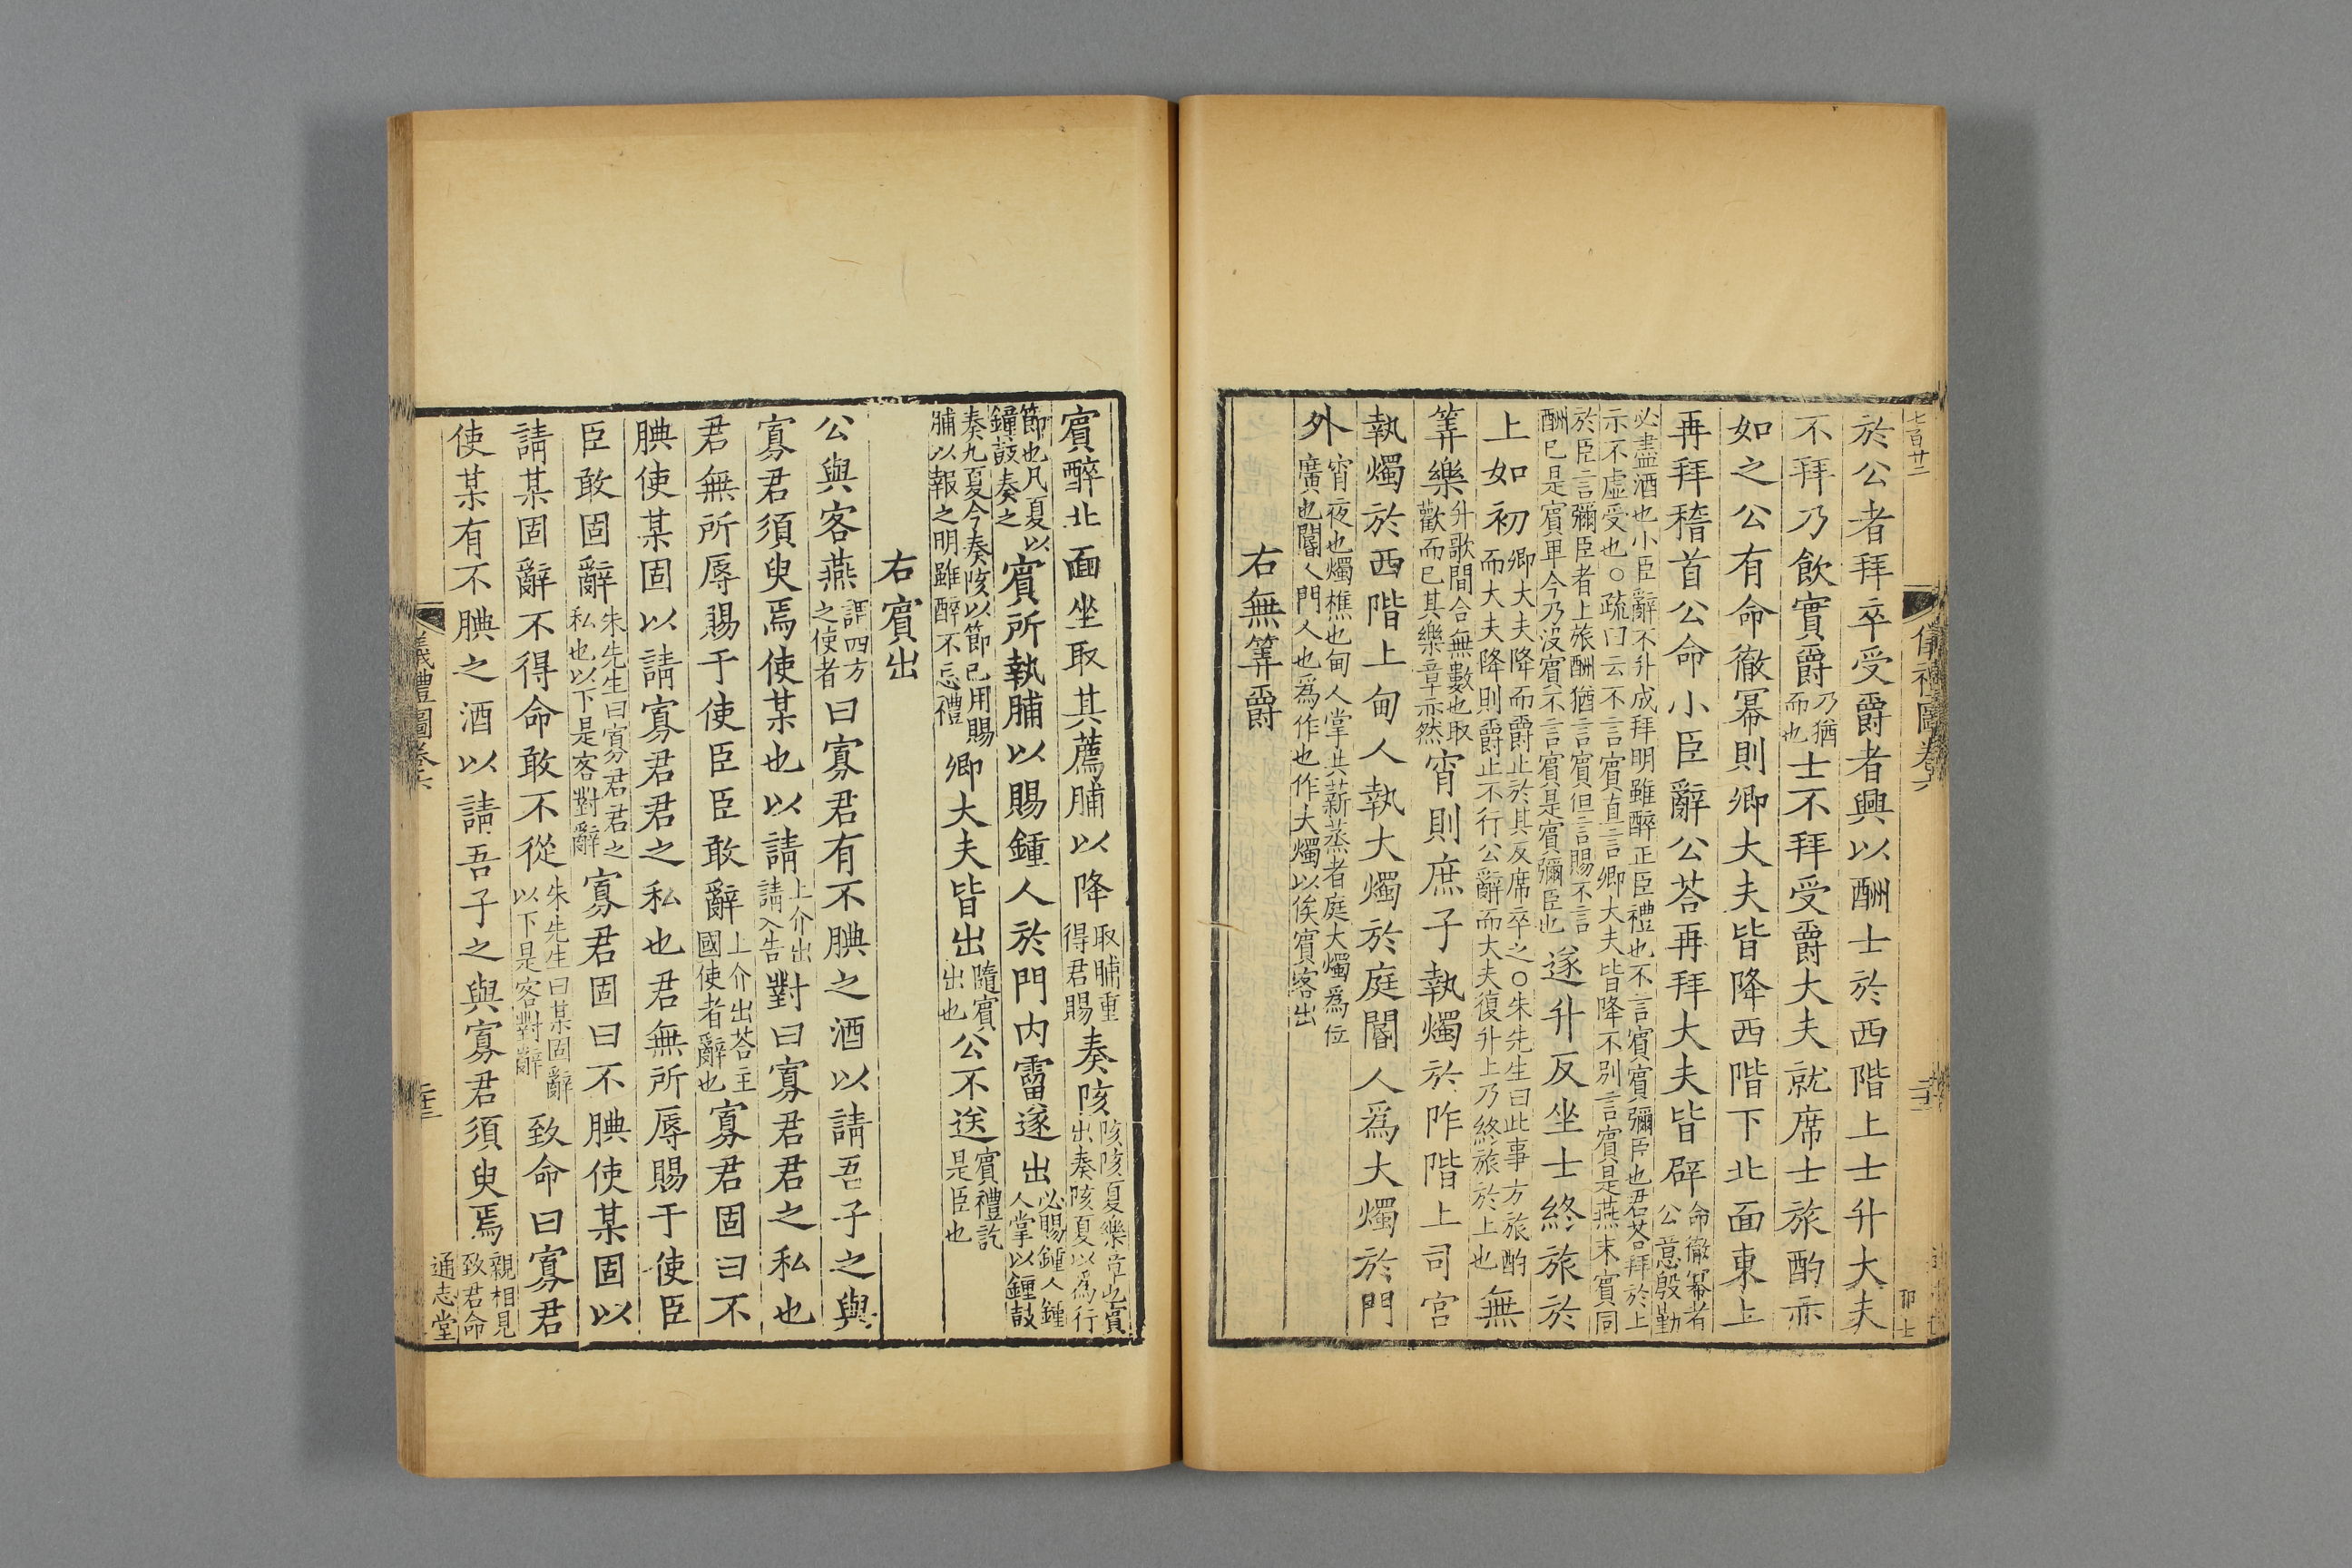 七百廿二
儀禮圖卷六
於公者拜卒受爵者興以酬士於西階上士升大夫
不拜乃飲實爵乃猶而也士不拜受爵大夫就席士旅酌亦
如之公有命徹冪則卿大夫皆降西階下北面東上
再拜稽首公命小臣辭公荅再拜大夫皆辟命徹冪者公意殷勤
必盡酒也小臣辭不升成拜明雖醉正臣禮也不言賓賓彌臣也君荅拜於上
示不虛受也○疏曰云不言賓直言卿大夫皆降不別言賓是燕末賓同
於臣言彌臣者上旅酬猶言賓但言賜不言
酬已是賓卑今乃沒賓不言賓是賓彌臣也遂升反坐士終旅於
上如初卿大夫降而爵止於其反席卒之○朱先生曰此事方旅酌而大夫降則爵止不行公辭而大夫復升上乃終旅於上也無
筭樂升歌間合無數也取歡而已其樂章亦然宵則庶子執燭於阼階上司宮
執燭於西階上甸人執大燭於庭閽人為大燭於門
外宵夜也燭燋也甸人掌共薪蒸者庭大燭為位廣也閽人門人也為作也作大燭以俟賓客出
右無筭爵
賓醉北面坐取其薦脯以降取脯重得君賜奏陔陔陔夏樂章也賓出奏陔夏以為行
節也凡夏以鐘鼓奏之賓所執脯以賜鍾人於門內霤遂出必賜鍾人鍾人掌以鍾鼓
奏九夏今奏陔以節已用賜脯以報之明雖醉不忘禮卿大夫皆出隨賓出也公不送賓禮訖是臣也
右賓出
公與客燕謂四方之使者曰寡君有不腆之酒以請吾子之與
寡君須臾焉使某也以請上介出請入告對曰寡君君之私也
君無所辱賜于使臣臣敢辭上介出荅主國使者辭也寡君固曰不
腆使某固以請寡君君之私也君無所辱賜于使臣
臣敢固辭朱先生曰寡君君之私也以下是客對辭寡君固曰不腆使某固以
請某固辭不得命敢不從朱先生曰某固辭以下是客對辭致命曰寡君
使某有不腆之酒以請吾子之與寡君須臾焉親相見致君命
通志堂
儀禮圖卷六